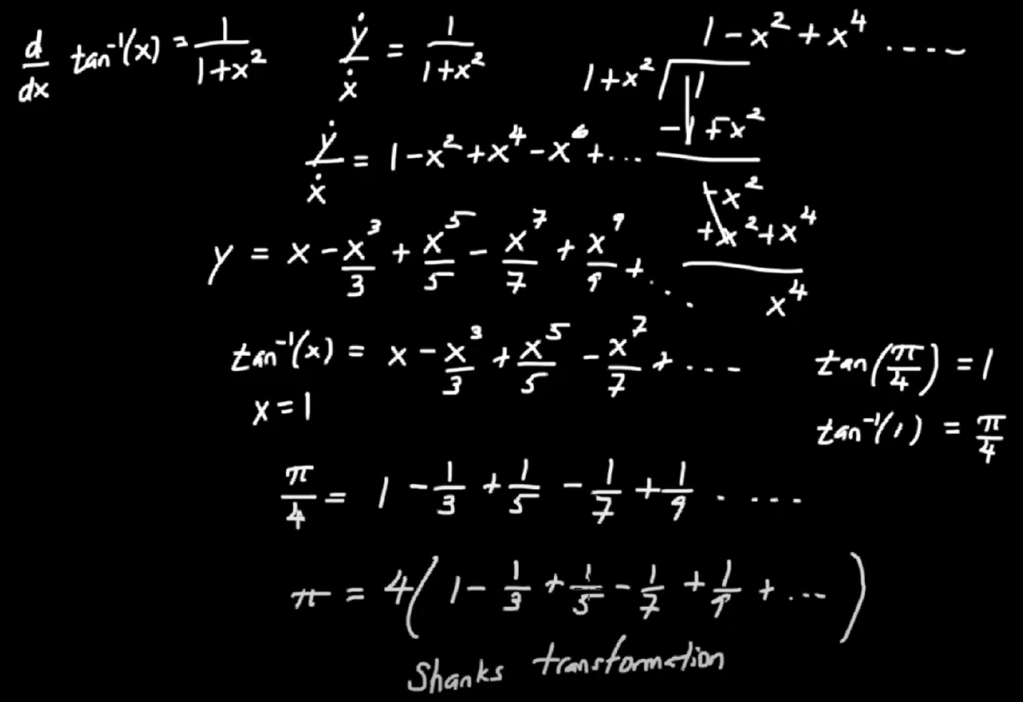 d/dx tan⁻¹(x) = 1/(1+x²)
ẏ/ẋ = 1/(1+x²)
1 - x² + x⁴ ....
1+x² √1
-1 + x²
ẏ/ẋ = 1 - x² + x⁴ - x⁶ + ...
-x²
+x² + x⁴
x⁴
y = x - x³/3 + x⁵/5 - x⁷/7 + x⁹/9 + ...
tan⁻¹(x) = x - x³/3 + x⁵/5 - x⁷/7 + ...
x = 1
tan(π/4) = 1
tan⁻¹(1) = π/4
π/4 = 1 - 1/3 + 1/5 - 1/7 + 1/9 .....
π = 4(1 - 1/3 + 1/5 - 1/7 + 1/9 + ...)
Shanks transformation